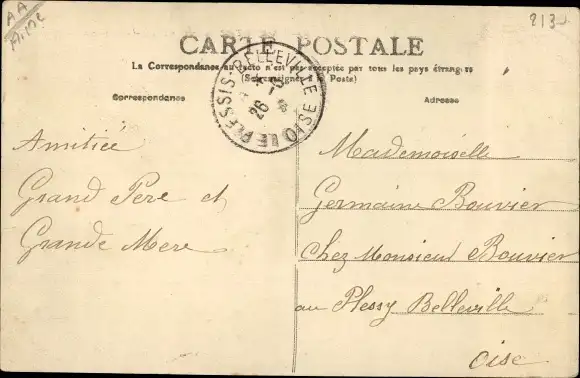 AA
Aisne
213
CARTE POSTALE
La Correspondance au recto n'est pas acceptée par tous les pays étrangers
(Se renseigner à la Poste)
Correspondance
Adresse
LE PLESSIS-BELLEVILLE OISE
26
Amitiée
Grand Pere et
Grande Mere
Mademoiselle
Germaine Bouvier
Chez Monsieur Bouvier
au Plessy Belleville
Oise